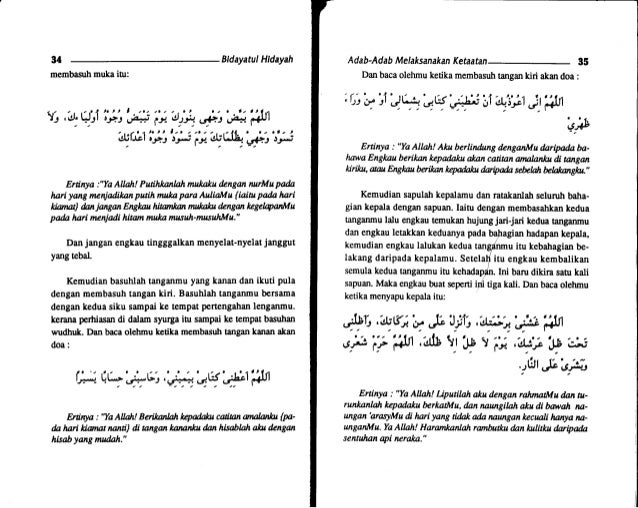 34 Bidayatul Hidayah
membasuh muka itu:
اَللّٰهُمَّ بَيِّضْ وَجْهِي بِنُوْرِكَ يَوْمَ تَبْيَضُّ وُجُوْهُ اَوْلِيَائِكَ، وَلَا
تُسَوِّدْ وَجْهِي بِظُلُمَاتِكَ يَوْمَ تَسْوَدُّ وُجُوْهُ اَعْدَائِكَ
Ertinya :"Ya Allah! Putihkanlah mukaku dengan nurMu pada
hari yang menjadikan putih muka para AuliaMu (iaitu pada hari
kiamat) dan jangan Engkau hitamkan mukaku dengan kegelapanMu
pada hari menjadi hitam muka musuh-musuhMu."
Dan jangan engkau tingggalkan menyelat-nyelat janggut
yang tebal.
Kemudian basuhlah tanganmu yang kanan dan ikuti pula
dengan membasuh tangan kiri. Basuhlah tanganmu bersama
dengan kedua siku sampai ke tempat pertengahan lenganmu.
kerana perhiasan di dalam syurga itu sampai ke tempat basuhan
wudhuk. Dan baca olehmu ketika membasuh tangan kanan akan
doa :
اَللّٰهُمَّ اَعْطِنِي كِتَابِي بِيَمِيْنِي، وَحَاسِبْنِي حِسَابًا يَسِيْرًا
Ertinya : "Ya Allah! Berikanlah kepadaku catitan amalanku (pa-
da hari kiamat nanti) di tangan kananku dan hisablah aku dengan
hisab yang mudah."
Adab-Adab Melaksanakan Ketaatan 35
Dan baca olehmu ketika membasuh tangan kiri akan doa :
اَللّٰهُمَّ اِنِّي اَعُوْذُبِكَ اَنْ تُعْطِيَنِي كِتَابِي بِشِمَالِي اَوْ مِنْ وَرَاءِ
ظَهْرِي
Ertinya : "Ya Allah! Aku berlindung denganMu daripada ba-
hawa Engkau berikan kepadaku akan catitan amalanku di tangan
kiriku, atau Engkau berikan kepadaku daripada sebelah belakangku."
Kemudian sapulah kepalamu dan ratakanlah seluruh baha-
gian kepala dengan sapuan. Iaitu dengan membasahkan kedua
tanganmu lalu engkau temukan hujung jari-jari kedua tanganmu
dan engkau letakkan keduanya pada bahagian hadapan kepala,
kemudian engkau lalukan kedua tanganmu itu kebahagian be-
lakang daripada kepalamu. Setelah itu engkau kembalikan
semula kedua tanganmu itu kehadapan. Ini baru dikira satu kali
sapuan. Maka engkau buat seperti ini tiga kali. Dan baca olehmu
ketika menyapu kepala itu:
اَللّٰهُمَّ غَشِّنِي بِرَحْمَتِكَ، وَاَنْزِلْ عَلَيَّ مِنْ بَرَكَاتِكَ، وَاَظِلَّنِي
تَحْتَ ظِلِّ عَرْشِكَ، يَوْمَ لَا ظِلَّ اِلَّا ظِلُّكَ، اَللّٰهُمَّ حَرِّمْ شَعْرِي
وَبَشَرِي عَلَى النَّارِ.
Ertinya : "Ya Allah! Liputilah aku dengan rahmatMu dan tu-
runkanlah kepadaku berkatMu, dan naungilah aku di bawah na-
ungan 'arasyMu di hari yang tidak ada naungan kecuali hanya na-
unganMu. Ya Allah! Haramkanlah rambutku dan kulitku daripada
sentuhan api neraka."